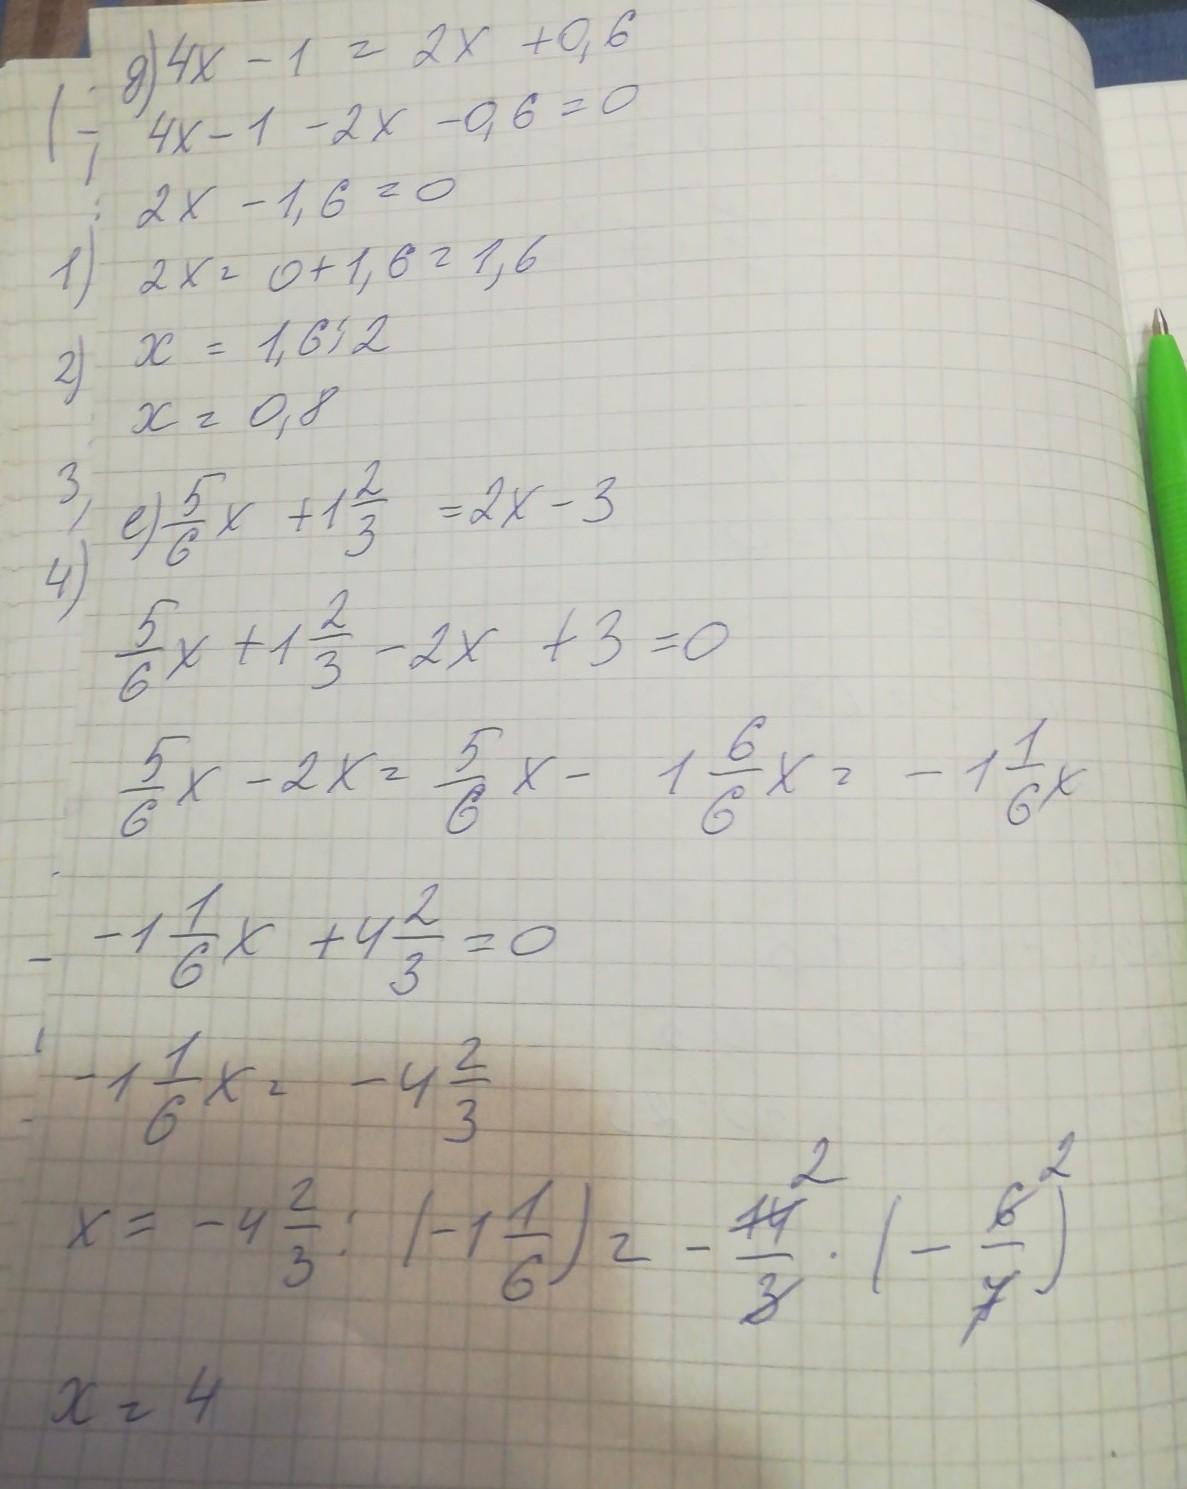 д) 4x - 1 = 2x + 0,6
4x - 1 - 2x - 0,6 = 0
2x - 1,6 = 0
1) 2x = 0 + 1,6 = 1,6
2) x = 1,6 : 2
x = 0,8
3,
е) 5/6 x + 1 2/3 = 2x - 3
4)
5/6 x + 1 2/3 - 2x + 3 = 0
5/6 x - 2x = 5/6 x - 1 6/6 x = - 1 1/6 x
- 1 1/6 x + 4 2/3 = 0
- 1 1/6 x = - 4 2/3
x = - 4 2/3 : (- 1 1/6) = - 14/3 2 · (- 6/7) 2
x = 4